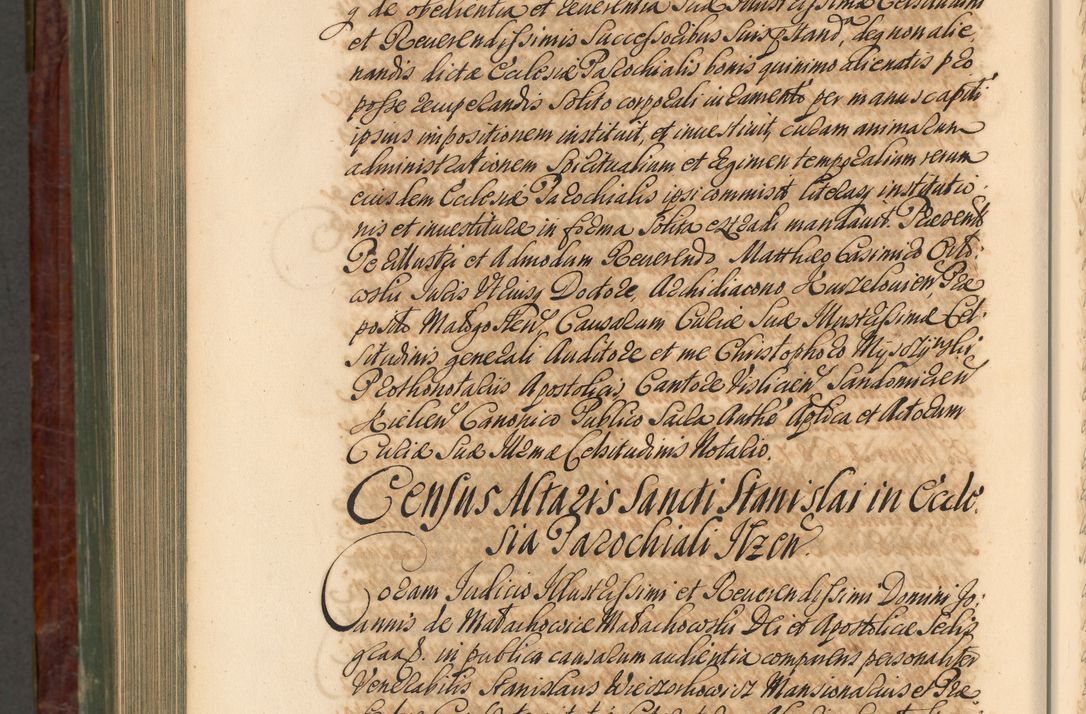 q de obedientia et reuerentia Suæ Illustrissimæ Celsitudini
et Reuerendissimis Successoribus Suis præstand, deq non alie,
nandis dictæ Ecclesiæ Parochialis bonis quinimo alienatis pro
posse recuperandis solito corporali iuramento, per manus capiti
ipsius impositionem instituit, et inuestiuit, curam animarum
administrationem Spiritualium et regimen temporalium rerum
eiusdem Ecclesiæ Parochialis ipsi commisit literasq institutio:
nis et inuestituræ in forma Solita extradi mandauit. Præsentib
Per Illustri et Admodum Reuerendo Matthæo Casimiro
Juris Vtriusq Doctore, Archidiacono Kurzelouien, Præ
posito Małogosten, Causarum Curiæ Suæ Illustrissimæ Cel:
situdinis generali Auditore et me Christophoro
Prothonotariis Apostolicis, Cantore Vislicien Sandomirien
Kielien Canonico Publico Sacra Authe Aplica et Actorum
Curiæ Suæ Illrmæ Celsitudinis Notario.
Census Altaris Sancti Stanislai in Eccle:
sia Parochiali Ilzen.
Coram Iudicio Illustrissimi et Reuerendissimi Domini Jo:
annis de Małachowice Małachowski Dei et Apostolicæ Sedis
graâ. in publica causarum audientia comparens personaliter
Venerabilis Stanislaus Wieczorkowicz Mansionarius et Præ